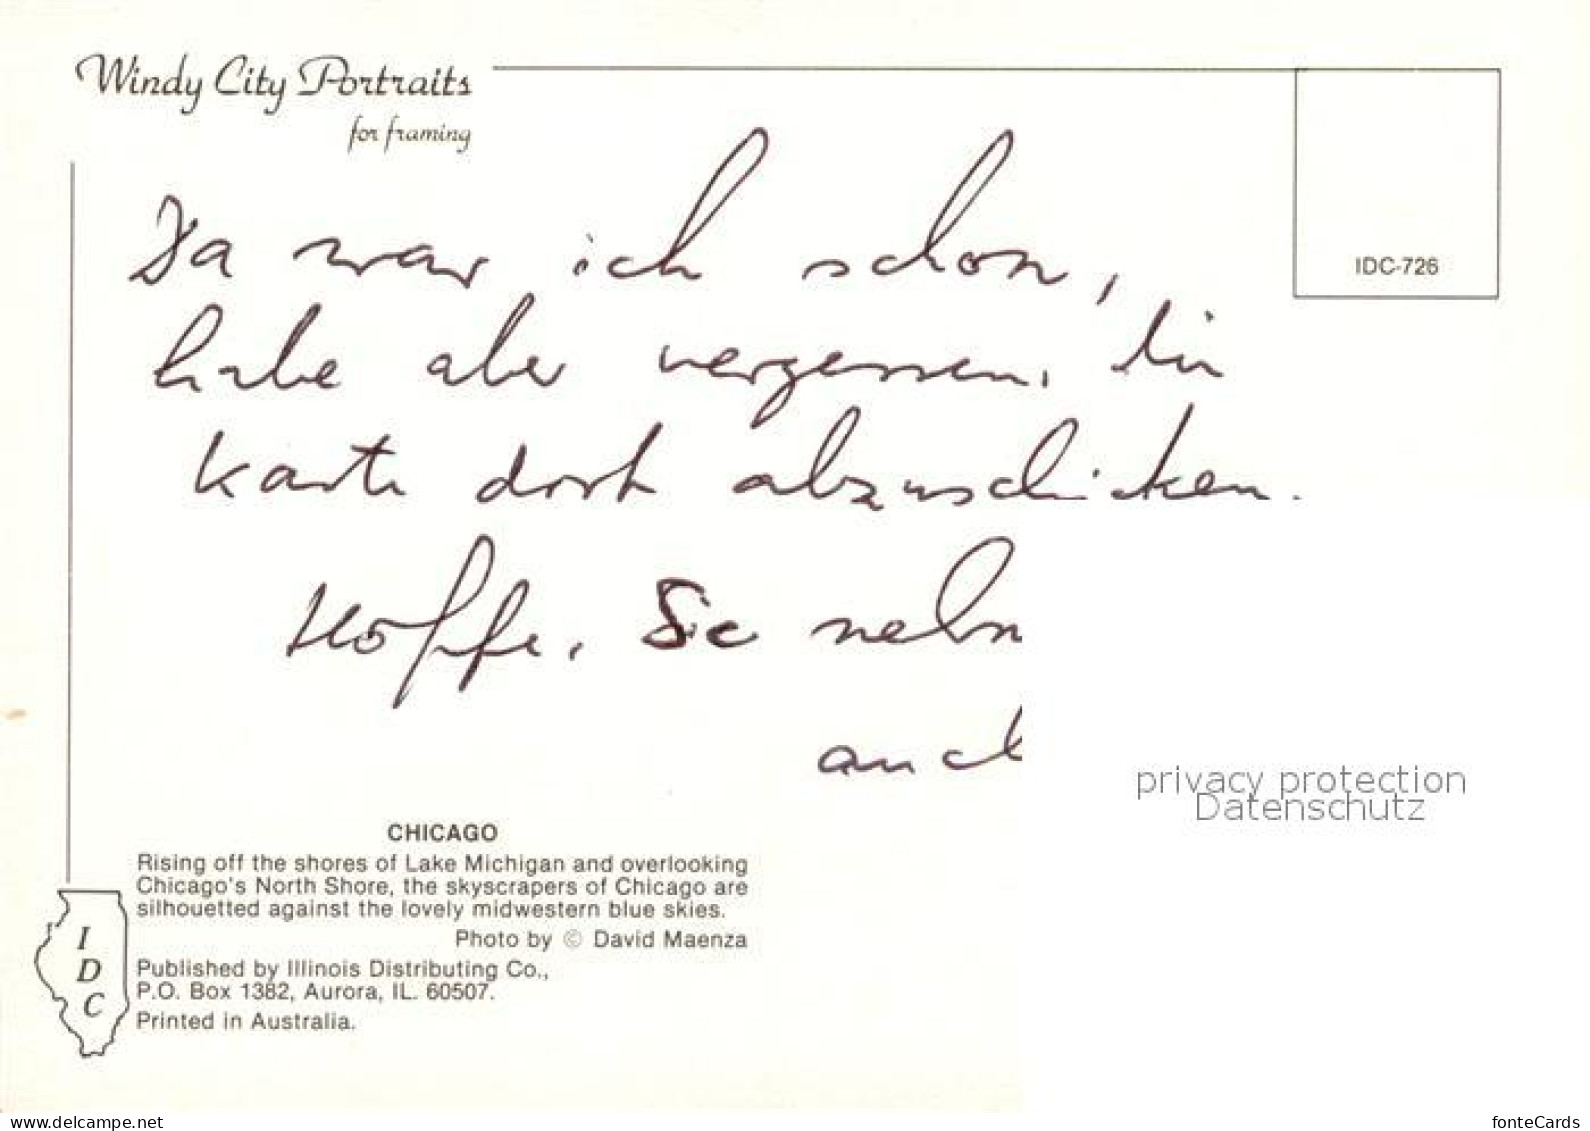 Windy City Portraits
for framing
IDC-726
Da war ich schon,
habe aber vergessen, die
Karte dort abzuschicken.
Hoffe, Sie nehm
auch
privacy protection
Datenschutz
CHICAGO
Rising off the shores of Lake Michigan and overlooking
Chicago's North Shore, the skyscrapers of Chicago are
silhouetted against the lovely midwestern blue skies.
Photo by © David Maenza
I
D
C
Published by Illinois Distributing Co.,
P.O. Box 1382, Aurora, IL. 60507.
Printed in Australia.
www.delcampe.net
fonteCards